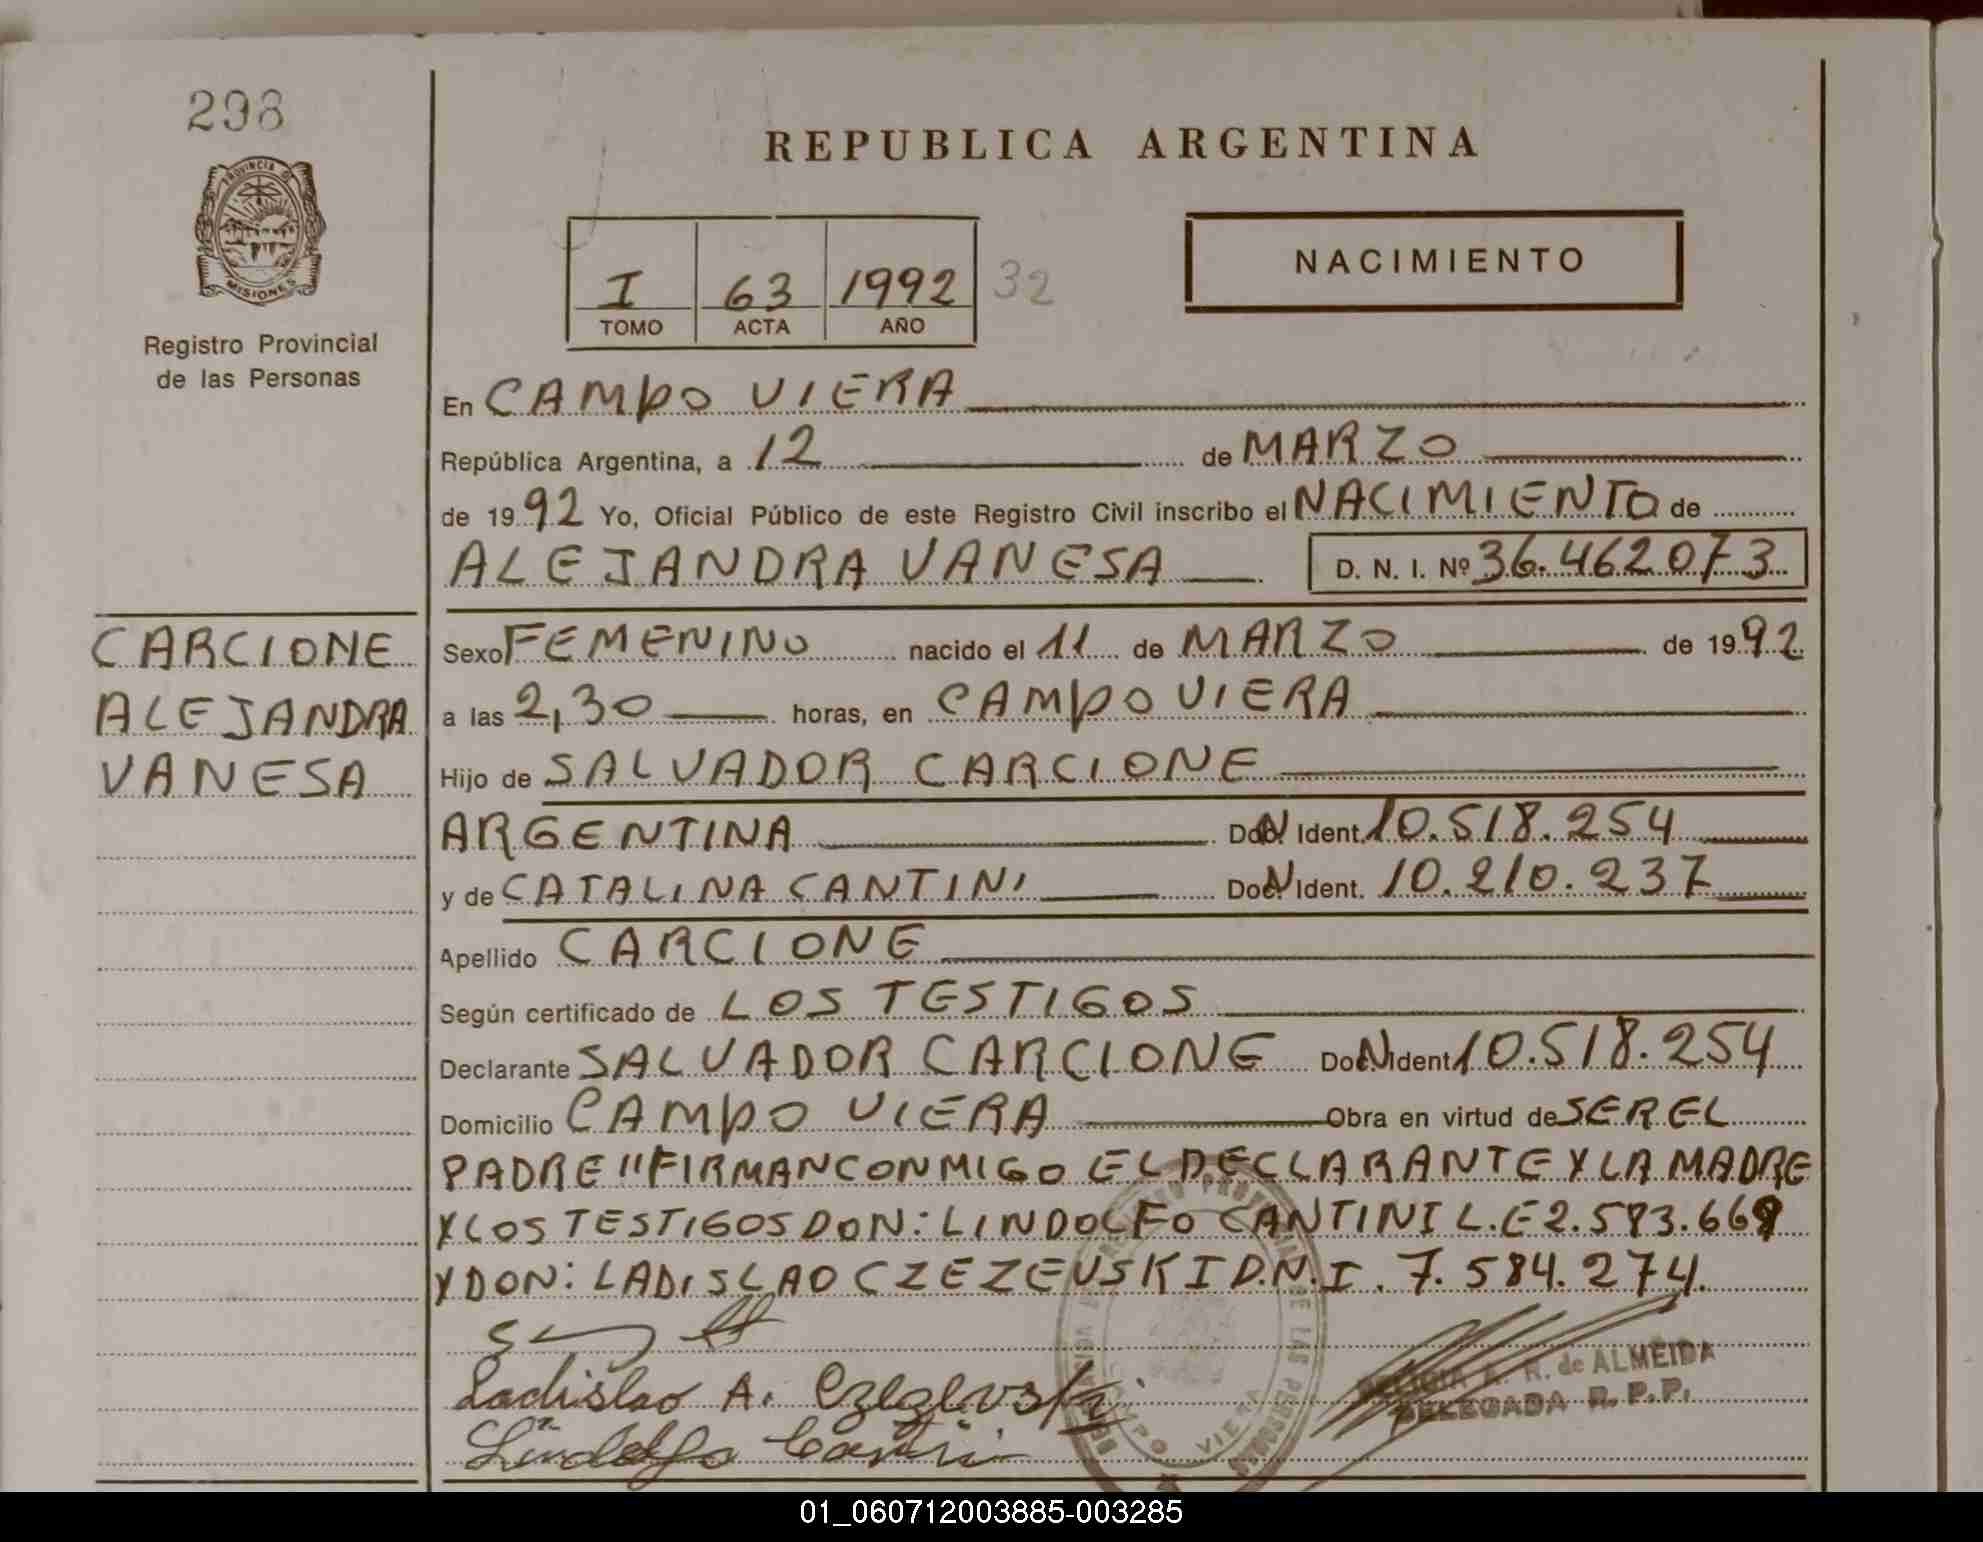 298
REPUBLICA ARGENTINA
PROVINCIA DE
MISIONES
Registro Provincial
de las Personas
I 63 1992 32
TOMO ACTA AÑO
NACIMIENTO
En CAMPO VIERA
República Argentina, a 12 de MARZO
de 1992 Yo, Oficial Público de este Registro Civil inscribo el NACIMIENTO de
ALEJANDRA VANESA D. N. I. Nº 36.462073
CARCIONE
ALEJANDRA
VANESA
Sexo FEMENINO nacido el 11 de MARZO de 1992
a las 2,30 horas, en CAMPO VIERA
Hijo de SALVADOR CARCIONE
ARGENTINA Doc. N Ident. 10.518.254
y de CATALINA CANTINI Doc. N Ident. 10.210.237
Apellido CARCIONE
Según certificado de LOS TESTIGOS
Declarante SALVADOR CARCIONE Doc. N Ident 10.518.254
Domicilio CAMPO VIERA Obra en virtud de SER EL
PADRE "FIRMAN CONMIGO EL DECLARANTE Y LA MADRE
Y LOS TESTIGOS DON: LINDOLFO CANTINI L.E 2.583.669
Y DON: LADISLAO CZEZEUSKI D.N.I. 7.584.274.
Ladislao A.
Lindolfo Cantini
R. de ALMEIDA
DELEGADA R.P.P.
REGISTRO PROVINCIAL DE LAS PERSONAS
CAMPO VIERA
01_060712003885-003285